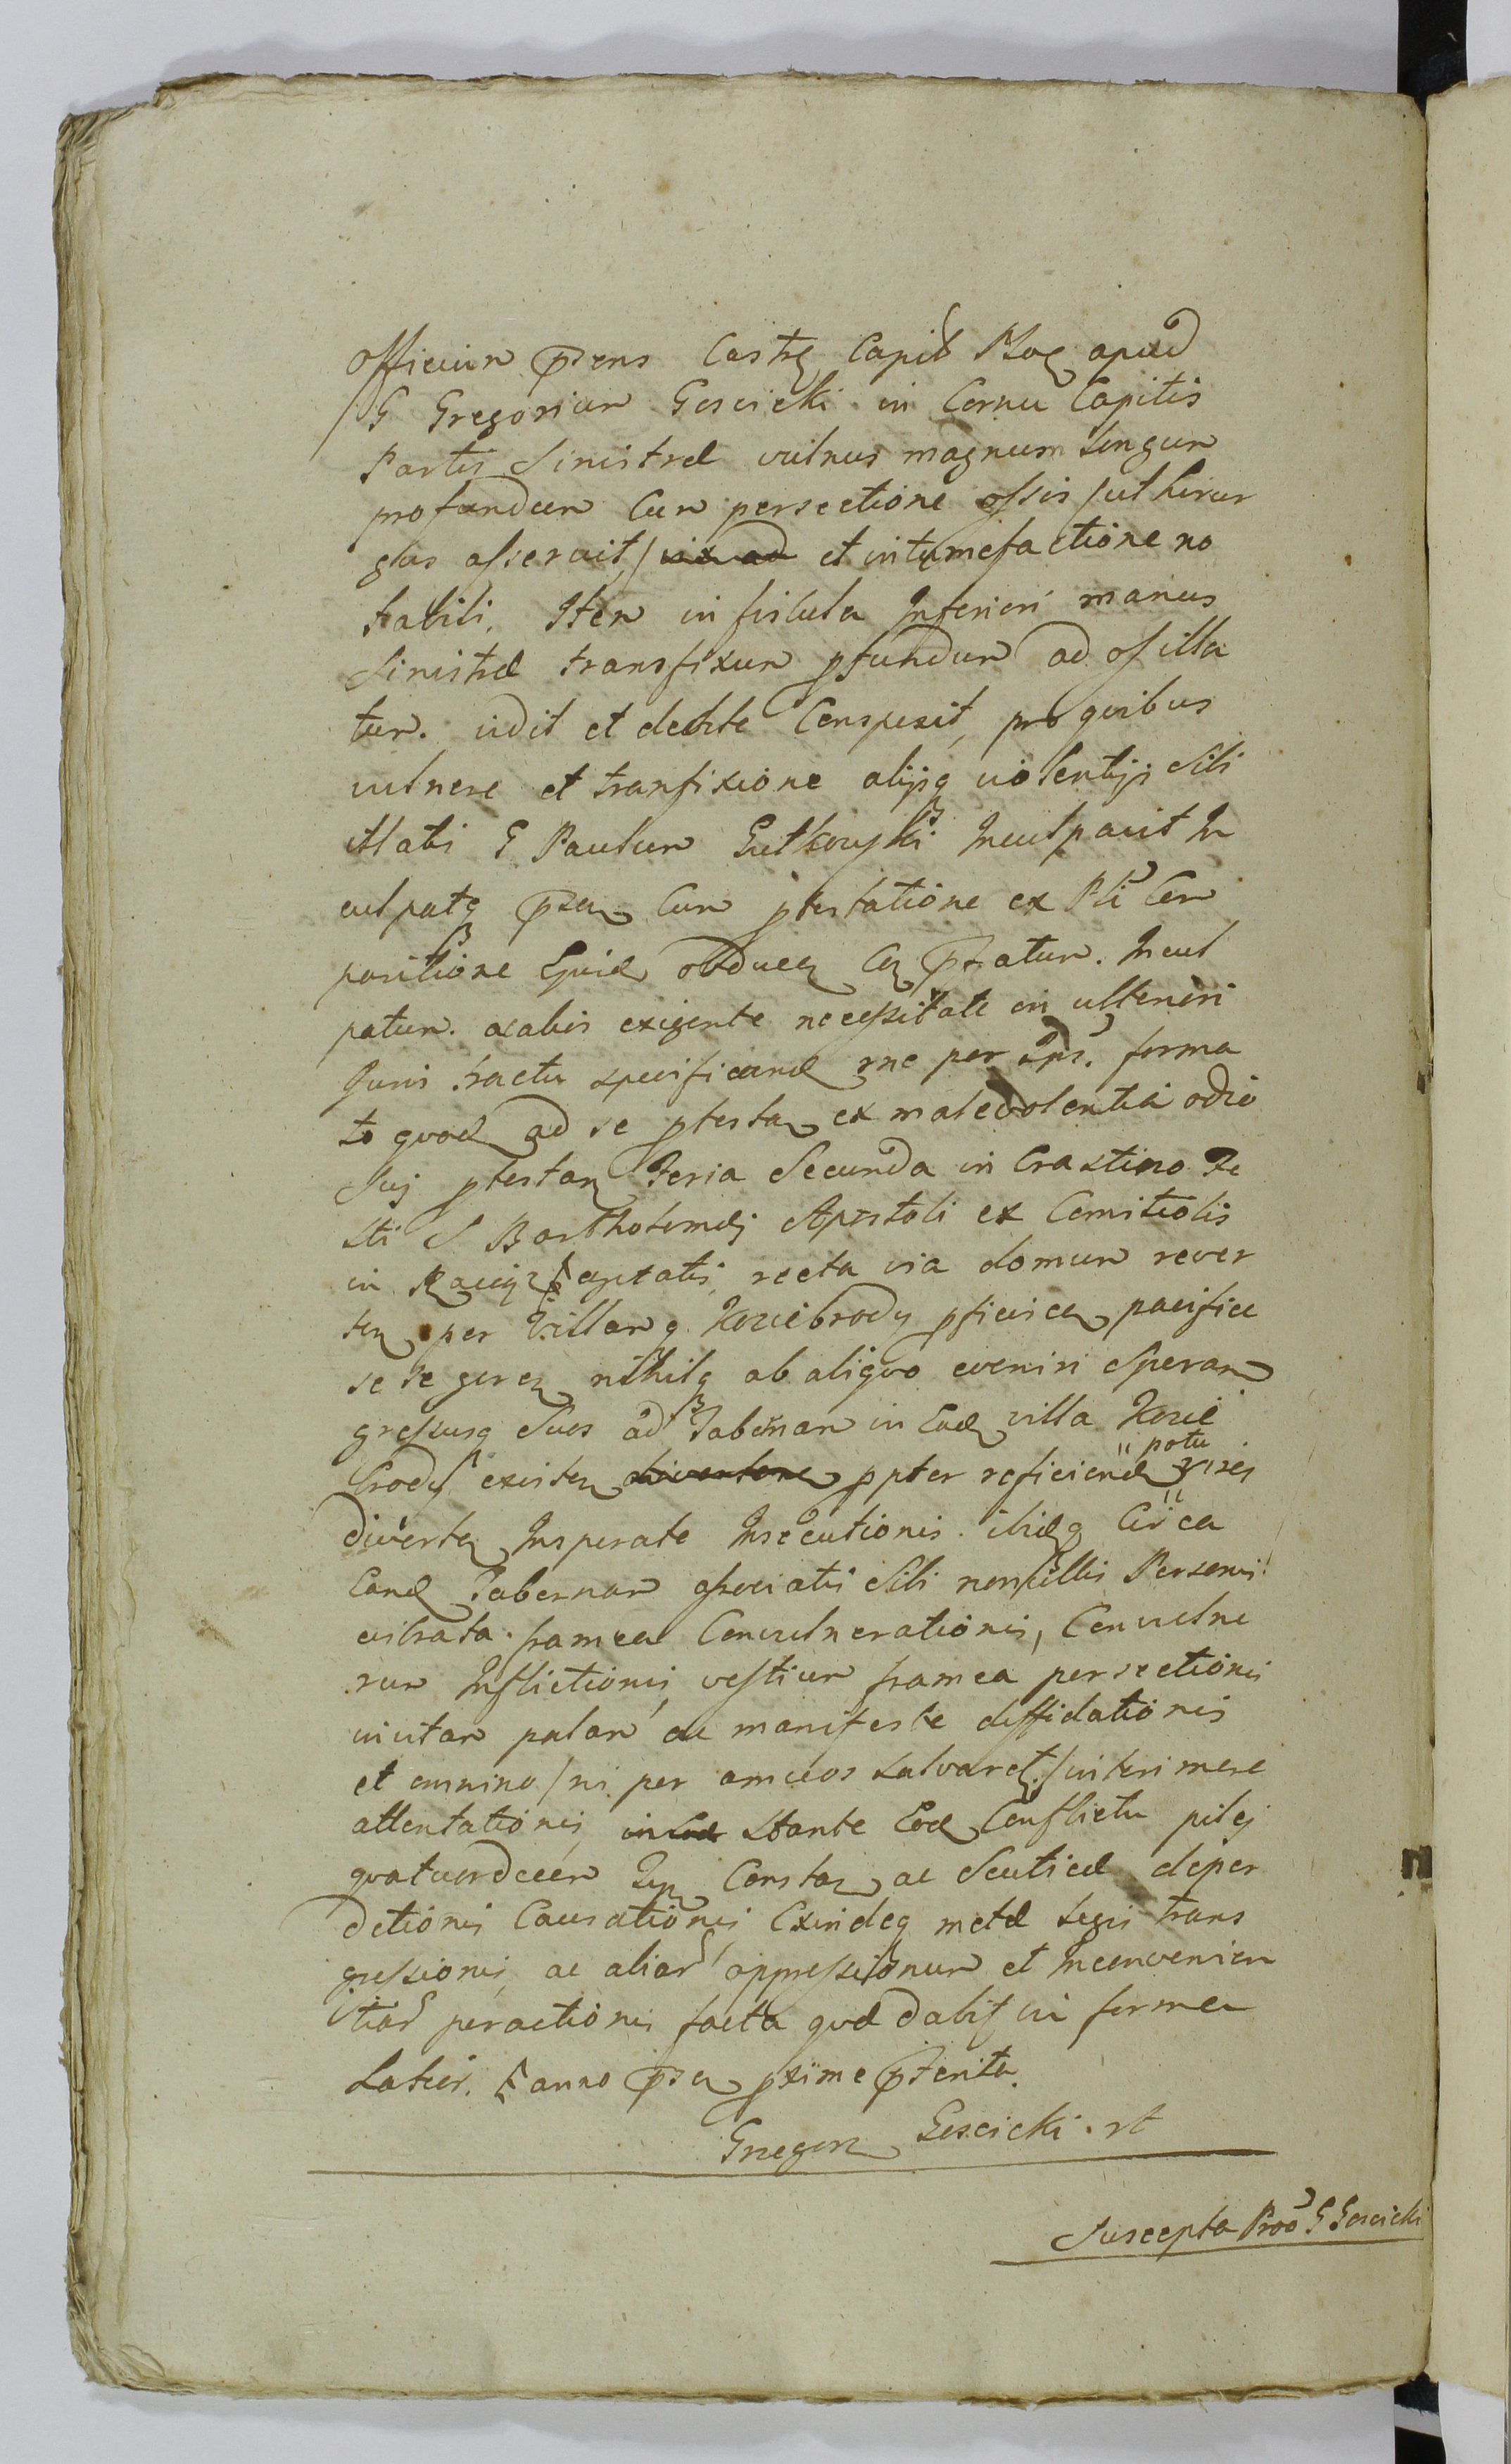 Officium prens Castr Capit Rog apud
G Gregorium Goscicki in Cornu Capitis
Partis Sinistræ vulnus magnum longum
profundum Cum persectione ossis /ut hirur
gus asseruit,/ et intumefactione no
tabili. Item in fistula Inferiori manus
Sinistræ transfixum pfundum ad os illa
tum. vidit et debite Conspexit, pro quibus
vulnere et transfixione alijsq violentijs Sibi
illatis G Paulum Gutkowski Inculpavit In
culpatq cum ptestatione ex
positione obduc Inculpatum. exigente necessitate in ulteriori
Juris tractu specificand per forma
to quod ad se ptesta ex malevolentia odio
Suj ptestan Feria Secunda in Crastino Fe
sti S Bartholomæj Apostoli ex Comitiolis
in recta via domum rever
ten per Villam q Koziebrody pficiscen pacifice
se se geren nihilq ab aliquo eveniri Speran
gressusq Suos ad Tabernam in Ead villa Kozie
brody existen ppter reficiend potu vires
diverten Insperate Insecutionis ibidq Circa
Eand Tabernam associatis Sibi nonnullis Personis
vibrata framea Convulnerationis, Con vulne
rum Inflictionis, vestium framea persectionis
palam ac manifeste diffidationis
et omnino /ni per amicos salvaret/ interimere
attentationis, Stante Eod Conflictu pilej
quatuordecem Consta ac Scuticæ deper
ditionis Causationis Exindeq metæ legis trans
gressionis, ac aliar oppressionum et Inconvenien
tiar peractionis facta quæ dabit in forma
Latior. anno pxime pterito.
Gregorz Goscicki
Suscepta G Goscicki